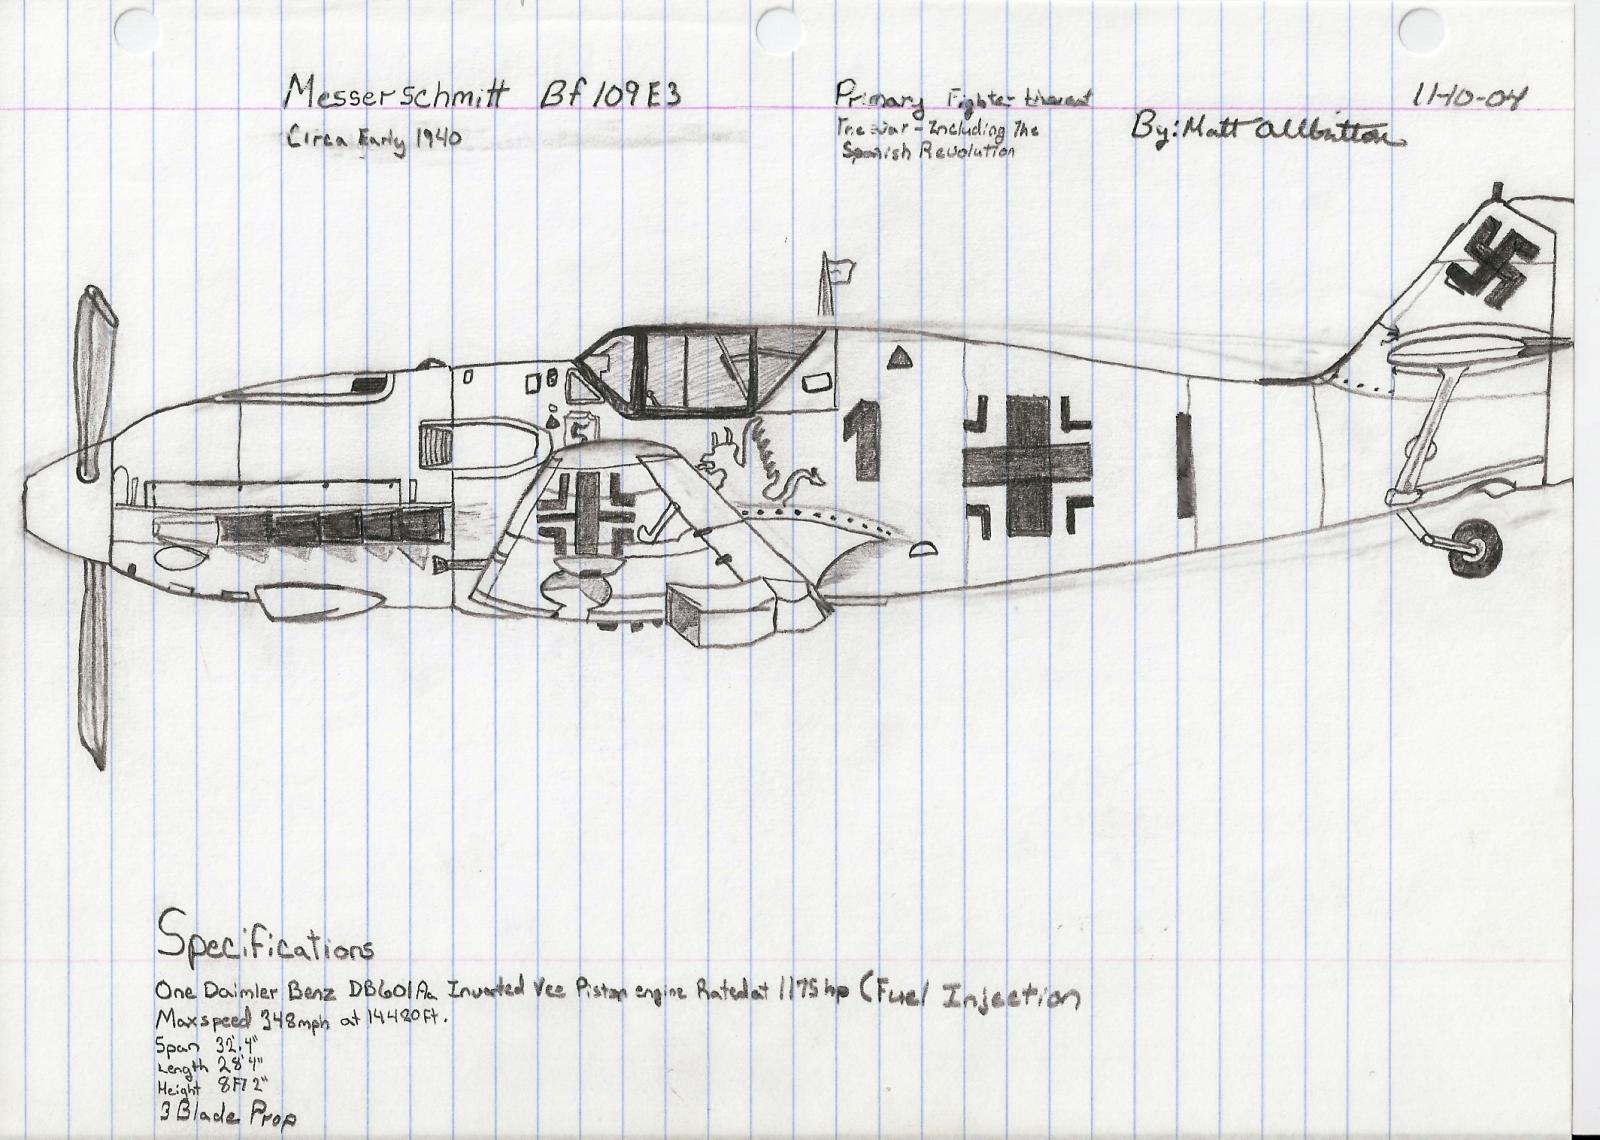 Messerschmitt Bf109E3
Circa Early 1940
Primary Fighter throughout
The war - Including The
Spanish Revolution
11-10-04
By: Matt Allbritton
5
1
Specifications
One Daimler Benz DB601Aa Inverted Vee Piston engine Rated at 1175hp (Fuel Injection
Maxspeed 348mph at 14480Ft.
Span 32'.4"
Length 28'4"
Height 8Ft 2"
3 Blade Prop